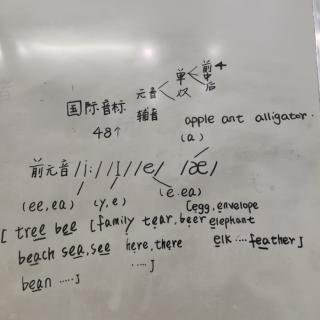 前4
单 中
元音 双 后
国际音标 辅音
48个
apple ant alligator.
(a)
前元音 /i:/ /I/ /e/ /æ/
(ee, ea) (y, e) (e. ea)
[egg, envelope
[ tree bee [family tear, beer elephant
beach sea, see here, there elk .... feather]
bean .....] .....]